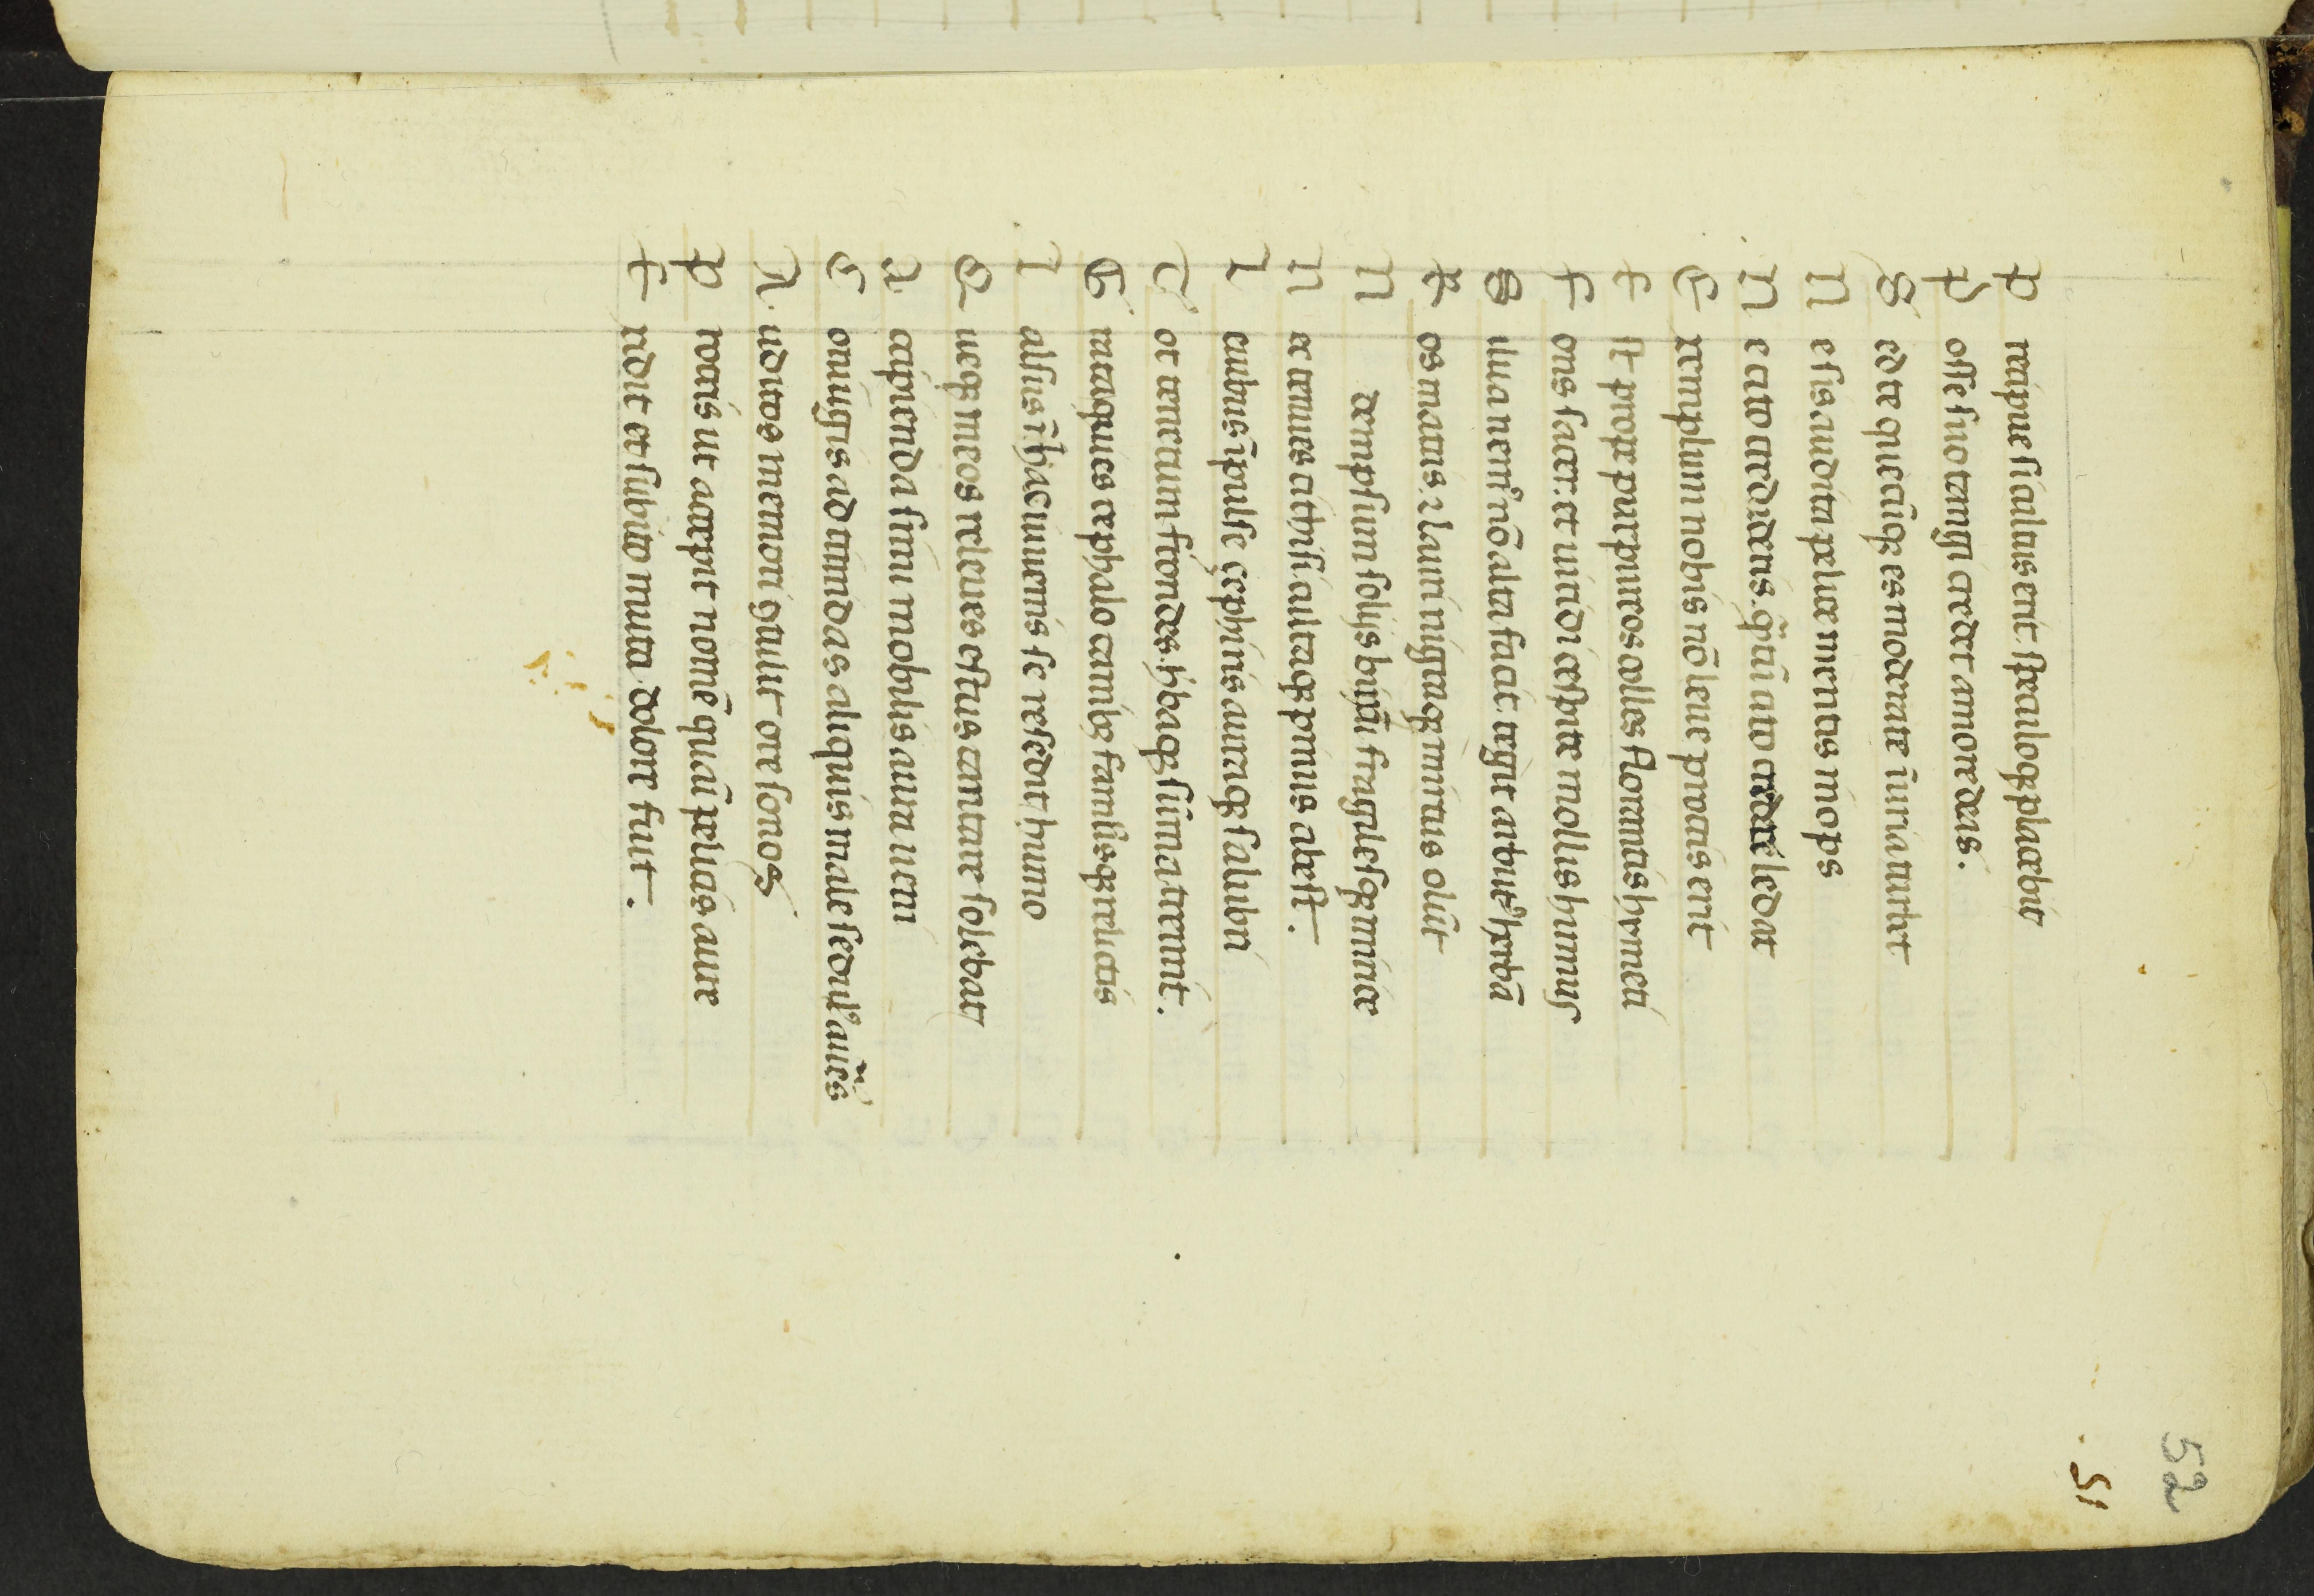 P recipue si cultus erit speculoq; placebit
P osse suo tangi credet amore deas.
S ed te quecūq; es moderate īiuria turbet
N ec sis audita pelice mentis inops
N ec cito credideris. q̄tū cito credere ledat
E xemplum nobis nō leue procris erit
E st prope purpureos colles florentis hymeti
F ons sacer. et uiridi cespite mollis humus
S ilua nem⁹ nō alta facit tegit arbut⁹ herbā
R os maris. ⁊ lauri nigraq; mirtus olēt
N densum foliis buxū fragilesq; mirice
N ec tenues citisi cultaq; pinus abest.
L enibus īpulse zephiris auraq; salubri
T ot generum frondes. hbaq; sūma tremit.
G rata quies cephalo canib; famulisq; relictis
L assus ī hac iuuenis se resedit humo
Q ueq; meos releues estus cantare solebat
A ccipienda sinu mobilis aura ueni
C oniugis ad timidas aliquis male sedul⁹ aures
A uditos memori detulit ore sonos
P rocris ut accepit nomē quasi pelicis aure
E xcidit et subito muta dolore fuit.
51
52